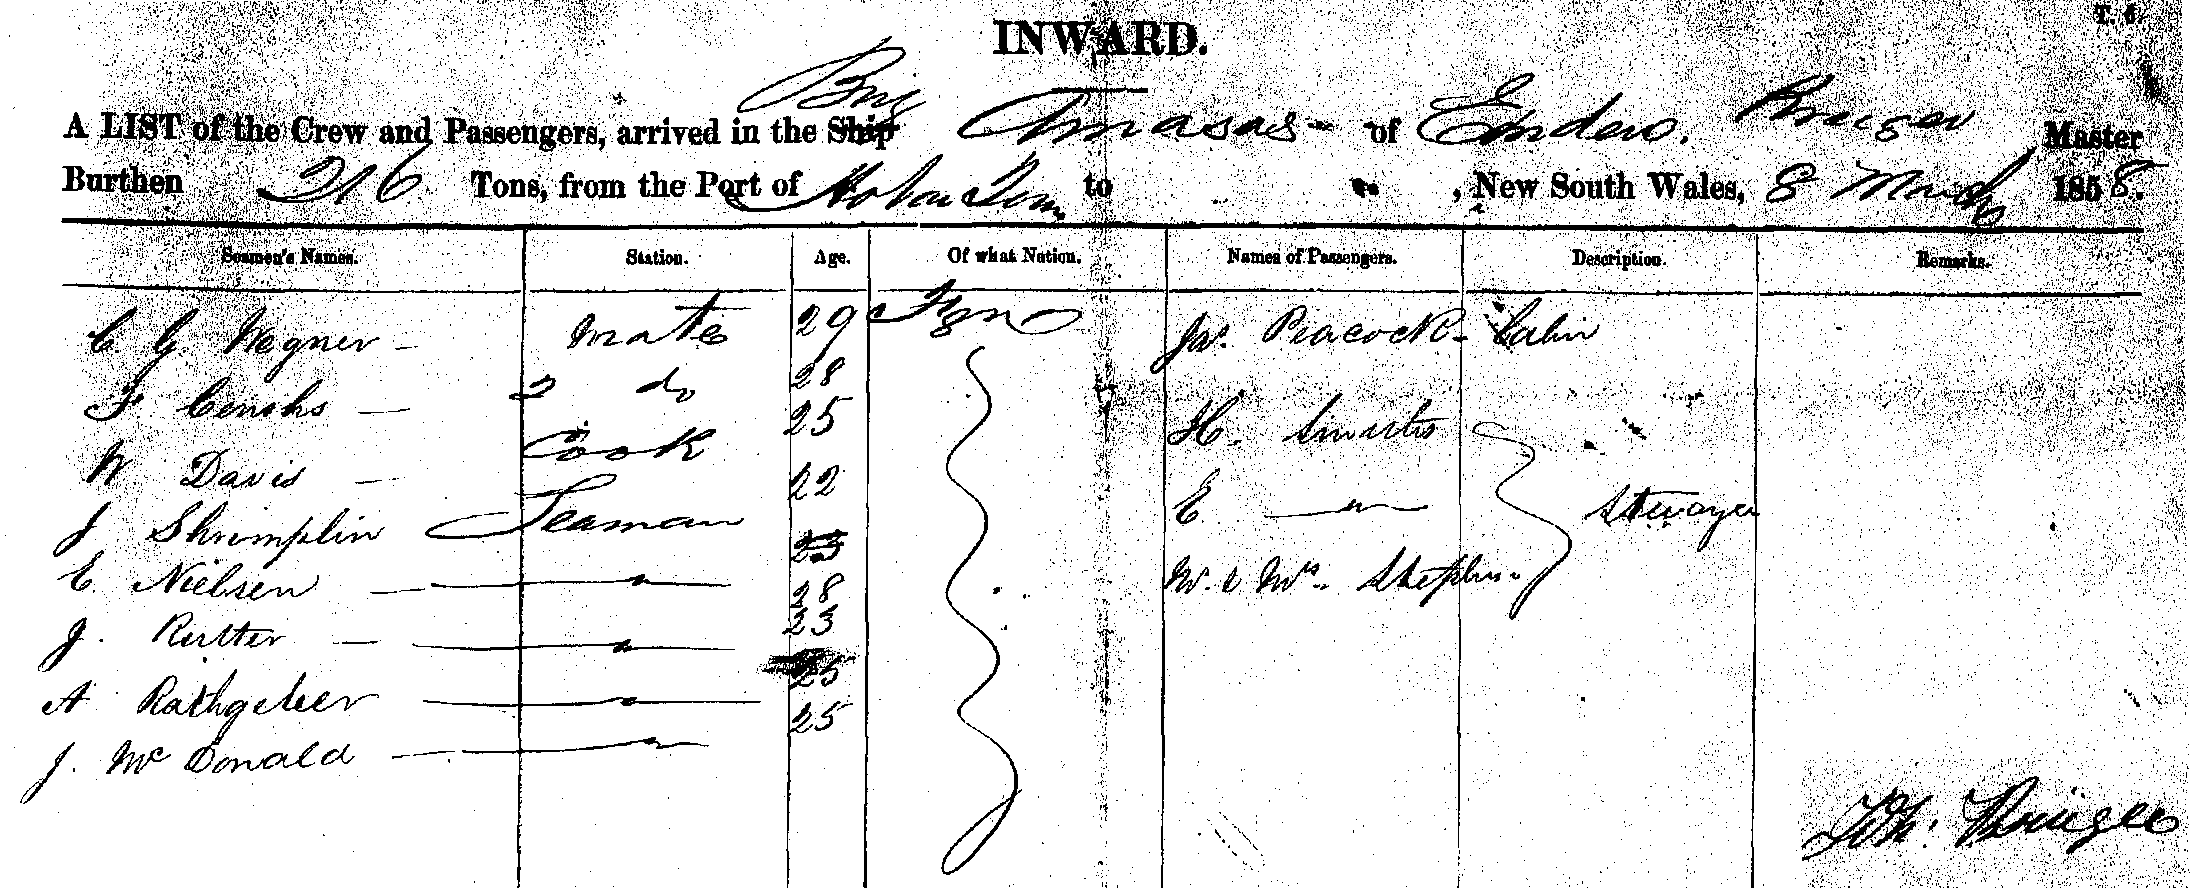 T. 5
INWARD.
A LIST of the Crew and Passengers, arrived in the Ship Brig Amasas of Emden. Krieger Master
Burthen 216 Tons, from the Port of Hobart Town to , New South Wales, 8 March 1858.
Seamen's Names. Station. Age. Of what Nation. Names of Passengers. Description. Remarks.
C. G. Wegner - Mate 29 Fgn Jas. Peacock - Cabin
F. — 2 do 28
W Davis — Cook 25 H.
J Shrimplin Seaman 22 E — " — Steerage
E. Nielsen — " — 23 M. & Mrs. Stephens
J. Rutter — " — 28
23
A Rathgeber — " — 25
J. McDonald — " — 25
Joh. Krieger